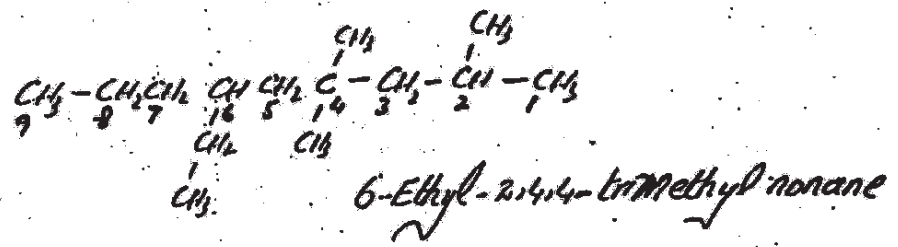 CH3 CH3
CH3 - CH2 CH2 CH CH2 C - CH2 - CH - CH3
9 8 7 6 5 4 3 2 1
CH2 CH3
CH3.
6-Ethyl-2,4,4-trimethyl nonane